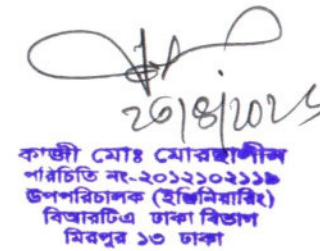 ২৩/৪/২০২৫
কাজী মোঃ মোরছালীন
পরিচিতি নং-২০১২১০২১১৯
উপপরিচালক (ইঞ্জিনিয়ারিং)
বিআরটিএ ঢাকা বিভাগ
মিরপুর ১৩ ঢাকা